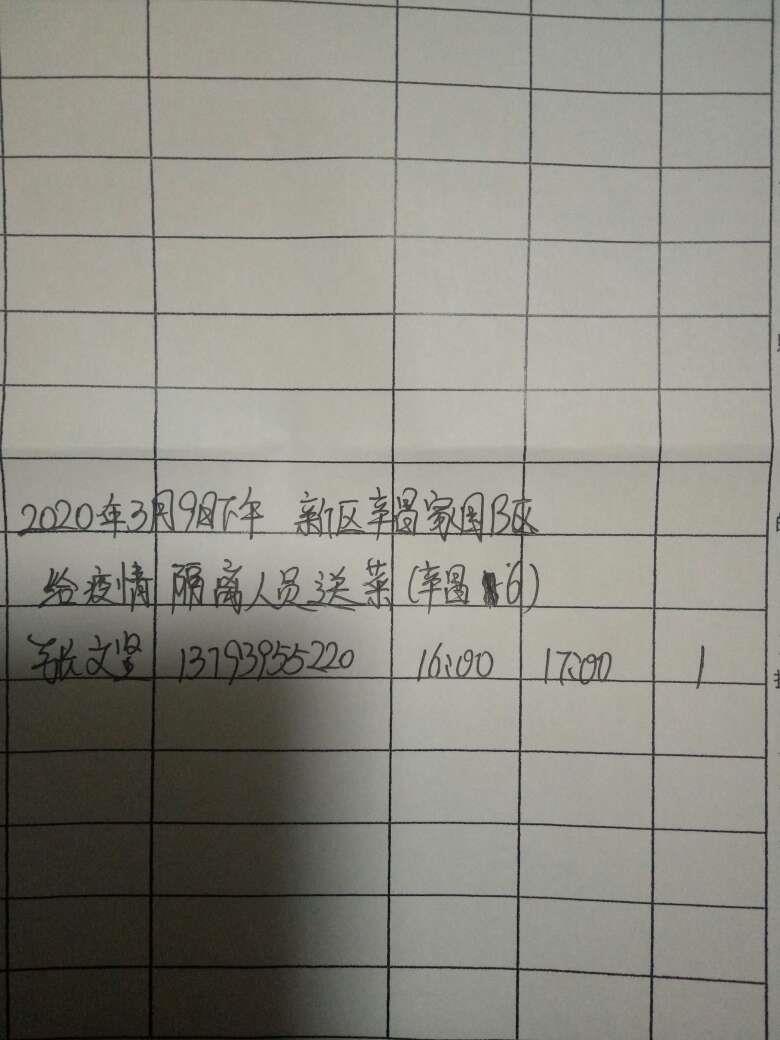 2020年3月9日下午 新区辛昌家园B区
给疫情隔离人员送菜(辛昌 -6)
张文坚 13793955220 16:00 17:00 1